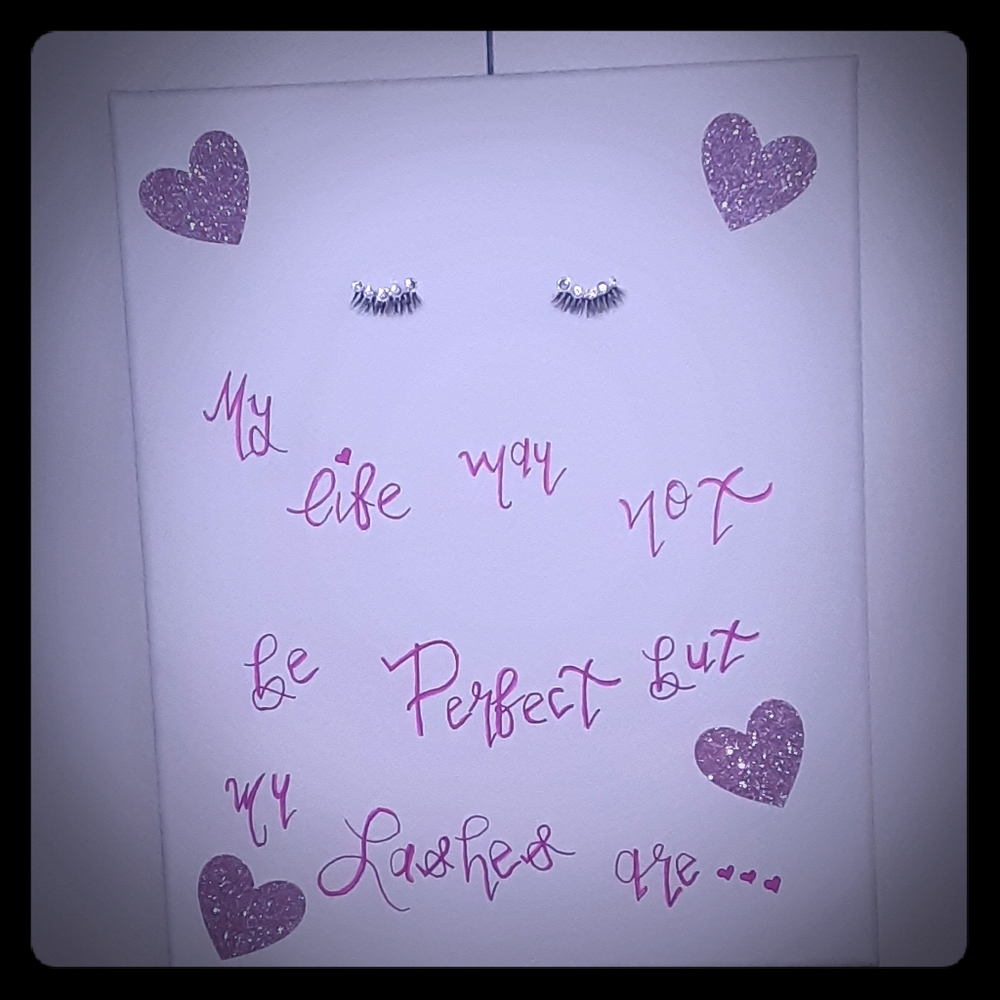 My life may not
be Perfect but
my Lashes are...